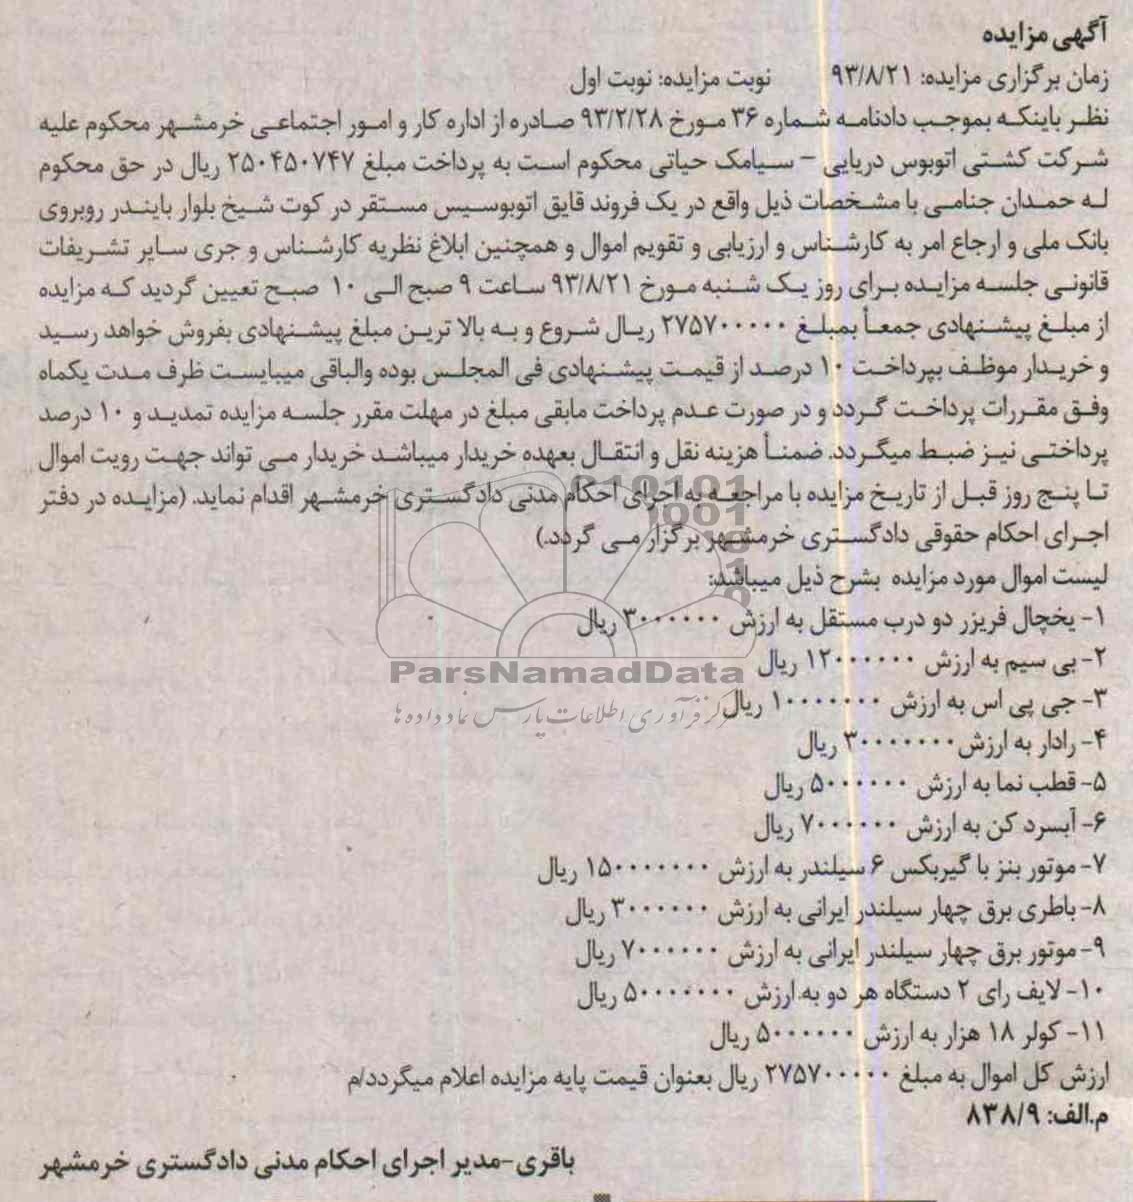 آگهی مزایده
زمان برگزاری مزایده: ۹۳/۸/۲۱ نوبت مزایده: نوبت اول
نظر باینکه بموجب دادنامه شماره ۳۶ مورخ ۹۳/۲/۲۸ صادره از اداره کار و امور اجتماعی خرمشهر محکوم علیه
شرکت کشتی اتوبوس دریایی - سیامک حیاتی محکوم است به پرداخت مبلغ ۲۵۰۴۵۰۷۴۷ ریال در حق محکوم
له حمدان جنامی با مشخصات ذیل واقع در یک فروند قایق اتوبوسیس مستقر در کوت شیخ بلوار بایندر روبروی
بانک ملی و ارجاع امر به کارشناس و ارزیابی و تقویم اموال و همچنین ابلاغ نظریه کارشناس و جری سایر تشریفات
قانونی جلسه مزایده برای روز یک شنبه مورخ ۹۳/۸/۲۱ ساعت ۹ صبح الی ۱۰ صبح تعیین گردید که مزایده
از مبلغ پیشنهادی جمعاً بمبلغ ۲۷۵۷۰۰۰۰۰ ریال شروع و به بالا ترین مبلغ پیشنهادی بفروش خواهد رسید
و خریدار موظف بپرداخت ۱۰ درصد از قیمت پیشنهادی فی المجلس بوده والباقی میبایست ظرف مدت یکماه
وفق مقررات پرداخت گردد و در صورت عدم پرداخت مابقی مبلغ در مهلت مقرر جلسه مزایده تمدید و ۱۰ درصد
پرداختی نیز ضبط میگردد. ضمناً هزینه نقل و انتقال بعهده خریدار میباشد خریدار می تواند جهت رویت اموال
تا پنج روز قبل از تاریخ مزایده با مراجعه به اجرای احکام مدنی دادگستری خرمشهر اقدام نماید. (مزایده در دفتر
اجرای احکام حقوقی دادگستری خرمشهر برگزار می گردد.)
لیست اموال مورد مزایده بشرح ذیل میباشد:
۱- یخچال فریزر دو درب مستقل به ارزش ۳۰۰۰۰۰۰ ریال
۲- بی سیم به ارزش ۱۲۰۰۰۰۰۰ ریال
ParsNamadData
۳- جی پی اس به ارزش ۱۰۰۰۰۰۰۰ ریال
مرکز فرآوری اطلاعات پارس نماد داده ها
۴- رادار به ارزش ۳۰۰۰۰۰۰۰ ریال
۵- قطب نما به ارزش ۵۰۰۰۰۰۰ ریال
۶- آبسرد کن به ارزش ۷۰۰۰۰۰۰ ریال
۷- موتور بنز با گیربکس ۶ سیلندر به ارزش ۱۵۰۰۰۰۰۰۰ ریال
۸- باطری برق چهار سیلندر ایرانی به ارزش ۳۰۰۰۰۰۰ ریال
۹- موتور برق چهار سیلندر ایرانی به ارزش ۷۰۰۰۰۰۰ ریال
۱۰- لایف رای ۲ دستگاه هر دو به ارزش ۵۰۰۰۰۰۰۰ ریال
۱۱- کولر ۱۸ هزار به ارزش ۵۰۰۰۰۰۰ ریال
ارزش کل اموال به مبلغ ۲۷۵۷۰۰۰۰۰ ریال بعنوان قیمت پایه مزایده اعلام میگردد/م
م.الف: ۸۳۸/۹
باقری-مدیر اجرای احکام مدنی دادگستری خرمشهر